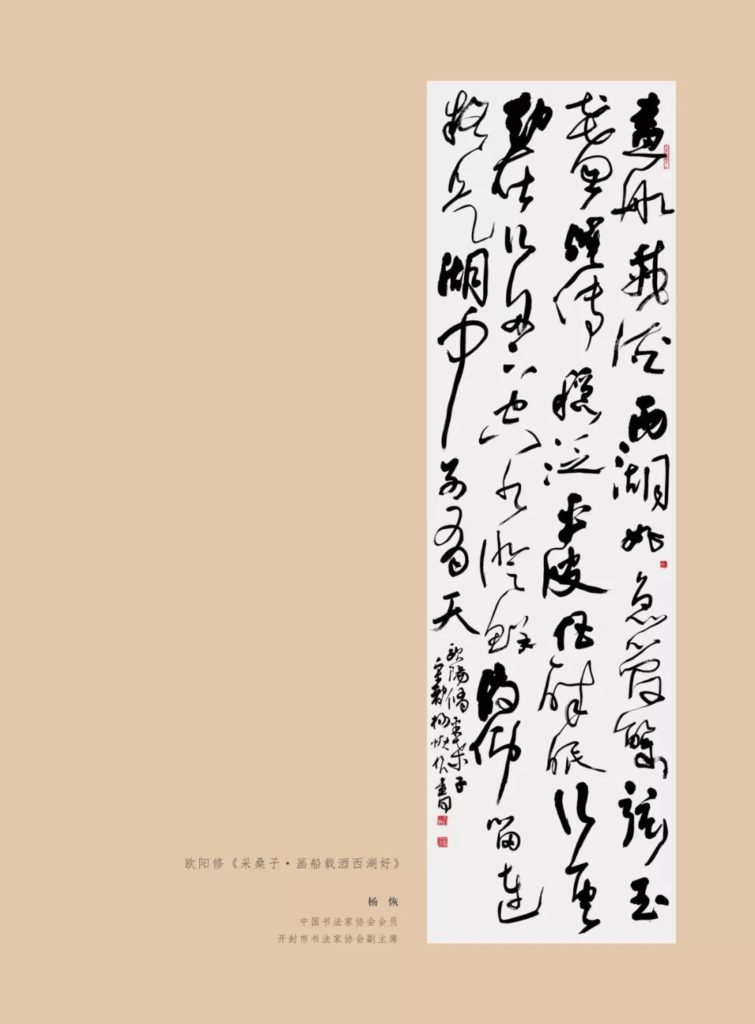 畫船載酒西湖好急管繁弦玉
盞催傳穩泛平波任醉眠行雲
却在行舟下空水澄鮮俯仰留連
疑是湖中別有天
歐陽脩采桑子
楊恢 書
欧阳修《采桑子·画船载酒西湖好》
杨 恢
中国书法家协会会员
开封市书法家协会副主席